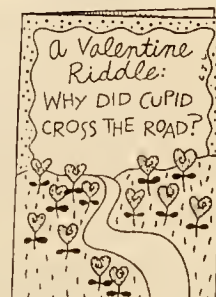 a Valentine
Riddle:
WHY DID CUPID
CROSS THE ROAD?